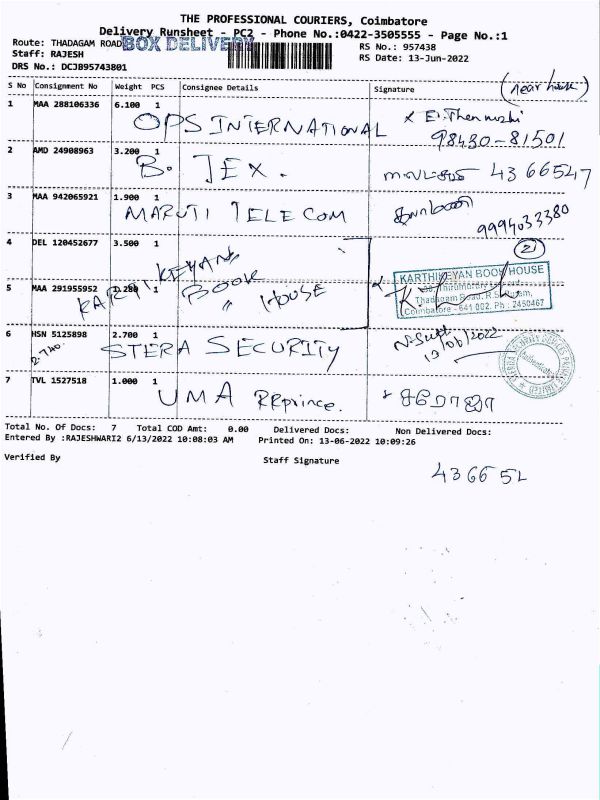 THE PROFESSIONAL COURIERS, Coimbatore
Delivery Runsheet - PC2 - Phone No.:0422-3505555 - Page No.:1
Route: THADAGAM ROAD BOX DELIVERY RS No.: 957438
Staff: RAJESH RS Date: 13-Jun-2022
DRS No.: DCJB95743801
(near house)
S No Consignment No Weight PCS Consignee Details Signature
1 MAA 288106336 6.100 1
OPS INTERNATIONAL
98430-81501
2 AMD 24908963 3.200 1
B. TEX. 43 66547
3 MAA 942065921 1.900 1
MARUTI TELECOM
9994033380
4 DEL 120452677 3.500 1
21
KARTHIKEYAN BOOK HOUSE
Thadagam Road, R.S. Puram,
Coimbatore - 641 002. Ph : 2450467
5 MAA 291955952 1.280 1
KARTHIKEYAN BOOK
" HOUSE
6 HSN 5125898 2.700 1
2.740.
STERA SECURITY
13/06/2022
7 TVL 1527518 1.000 1
UMA RRprince. சரோஜா
Total No. Of Docs: 7 Total COD Amt: 0.00 Delivered Docs: Non Delivered Docs:
Entered By :RAJESHWARI2 6/13/2022 10:08:03 AM Printed On: 13-06-2022 10:09:26
Verified By Staff Signature
43665L